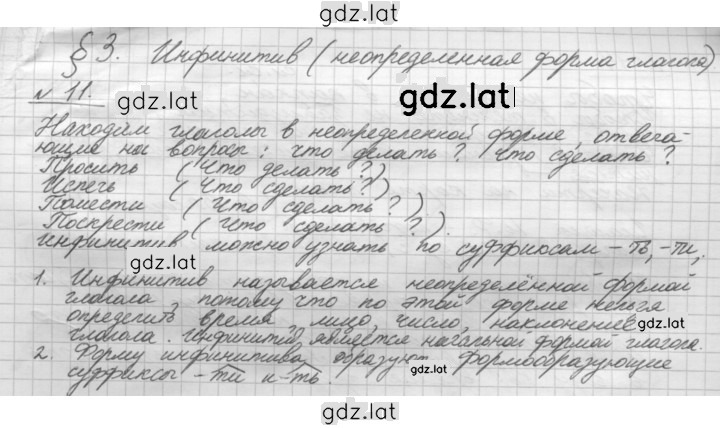 gdz.lat
§ 3. Инфинитив (неопределенная форма глагола)
№ 11. gdz.lat gdz.lat
Находим глаголы в неопределенной форме, отвеча-
ющие на вопросы: что делать? Что сделать?
Просить (Что делать?)
Испечь (Что сделать?)
Помести (Что сделать?)
Поскрести (Что сделать?).
Инфинитив можно узнать по суффиксам -ть, -ти,
gdz.lat
1. Инфинитив называется неопределённой формой
глагола, потому что по этой форме нельзя
определить время, лицо, число, наклонение gdz.lat
глагола. Инфинитив является начальной формой глагола.
2. Форму инфинитива образуют формообразующие
суффиксы -ти и -ть.
gdz.lat